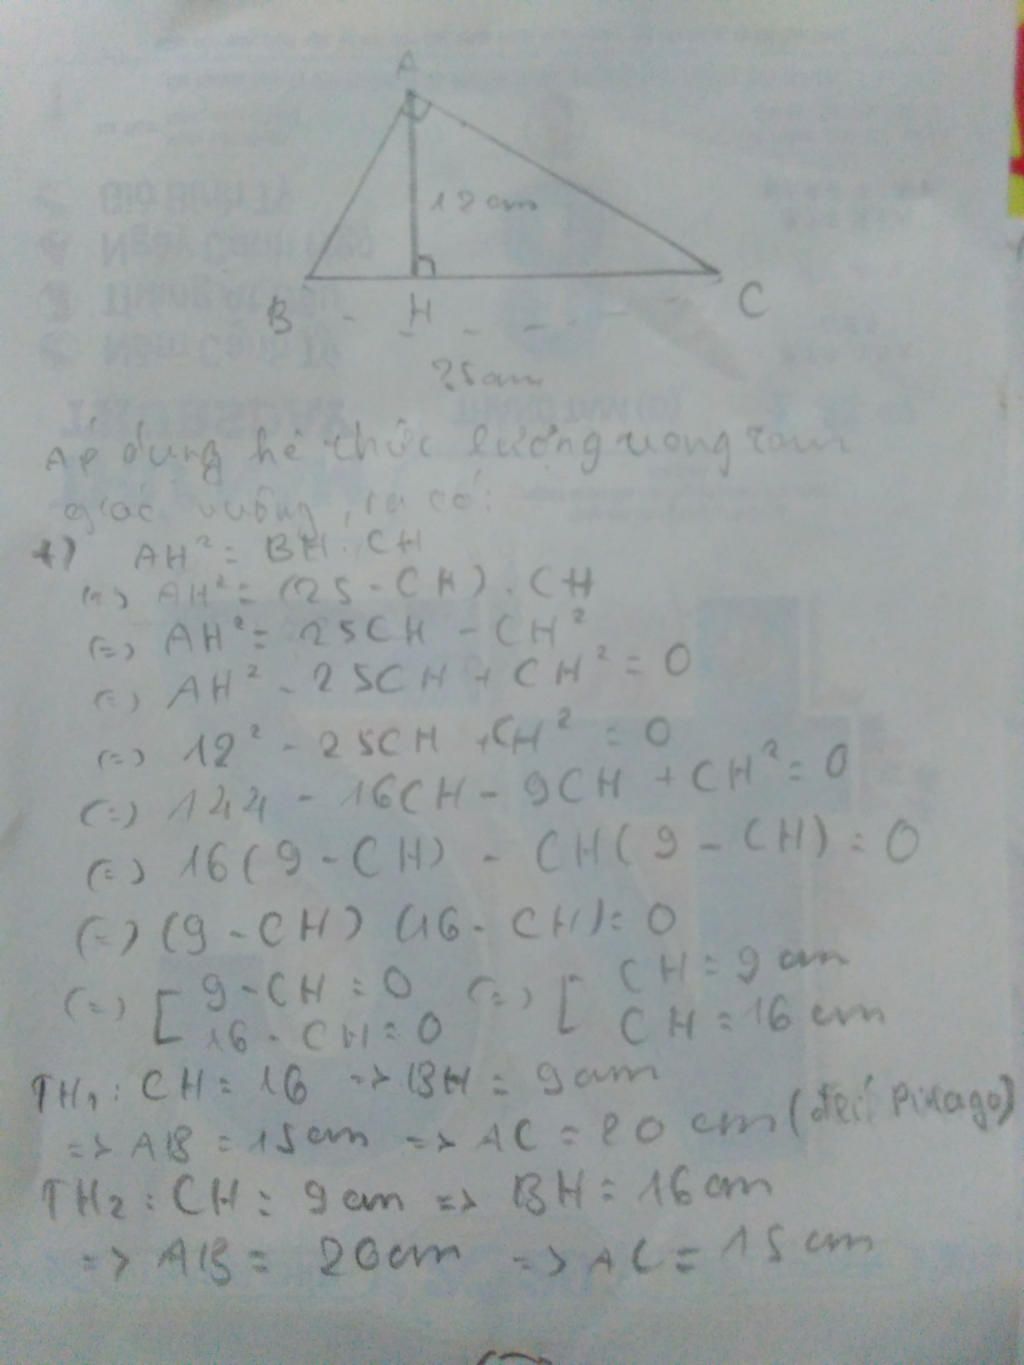 A
12cm
B H C
25cm
Áp dụng hệ thức lượng trong tam
giác vuông, ta có:
1) AH² = BH . CH
(=) AH² = (25 - CH) . CH
(=) AH² = 25CH - CH²
(=) AH² - 25CH + CH² = 0
(=) 12² - 25CH + CH² = 0
(=) 144 - 16CH - 9CH + CH² = 0
(=) 16(9 - CH) - CH(9 - CH) = 0
(=) (9 - CH) (16 - CH) = 0
(=) [ 9 - CH = 0 (=) [ CH = 9 cm
16 - CH = 0 CH = 16 cm
TH₁ : CH = 16 => BH = 9cm
=> AB = 15cm => AC = 20 cm (đ/l Pitago)
TH₂ : CH = 9cm => BH = 16cm
=> AB = 20cm => AC = 15cm